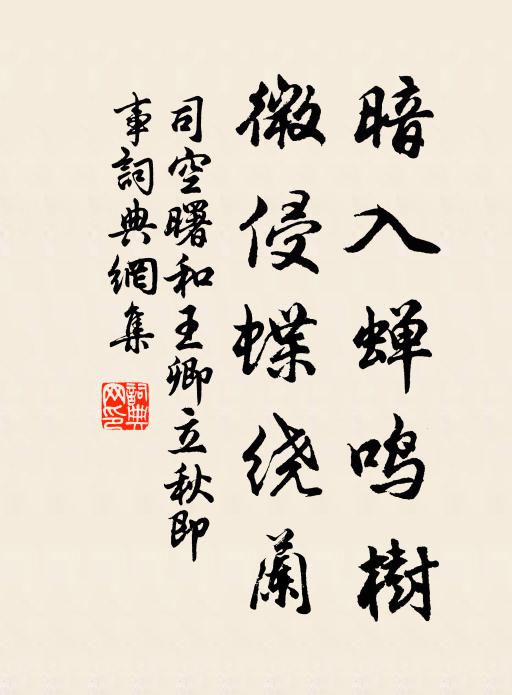 暗入蝉鸣樹
微侵蝶绕蘭
司空曙和王卿立秋即
事詞典網集
詞典
网印